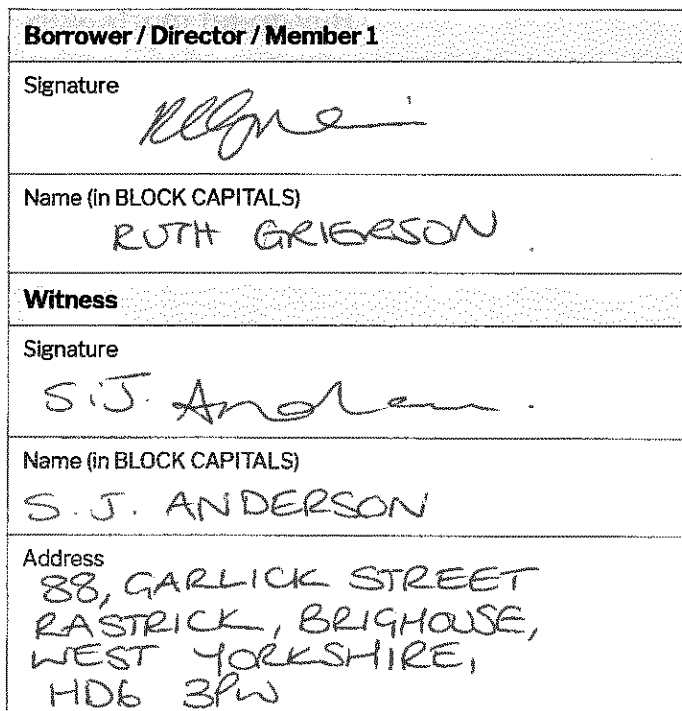 Borrower / Director / Member 1
Signature
Name (in BLOCK CAPITALS)
RUTH GRIERSON.
Witness
Signature
S.J. Anderson.
Name (in BLOCK CAPITALS)
S. J. ANDERSON
Address
88, GARLICK STREET
RASTRICK, BRIGHOUSE,
WEST YORKSHIRE,
HD6 3PW